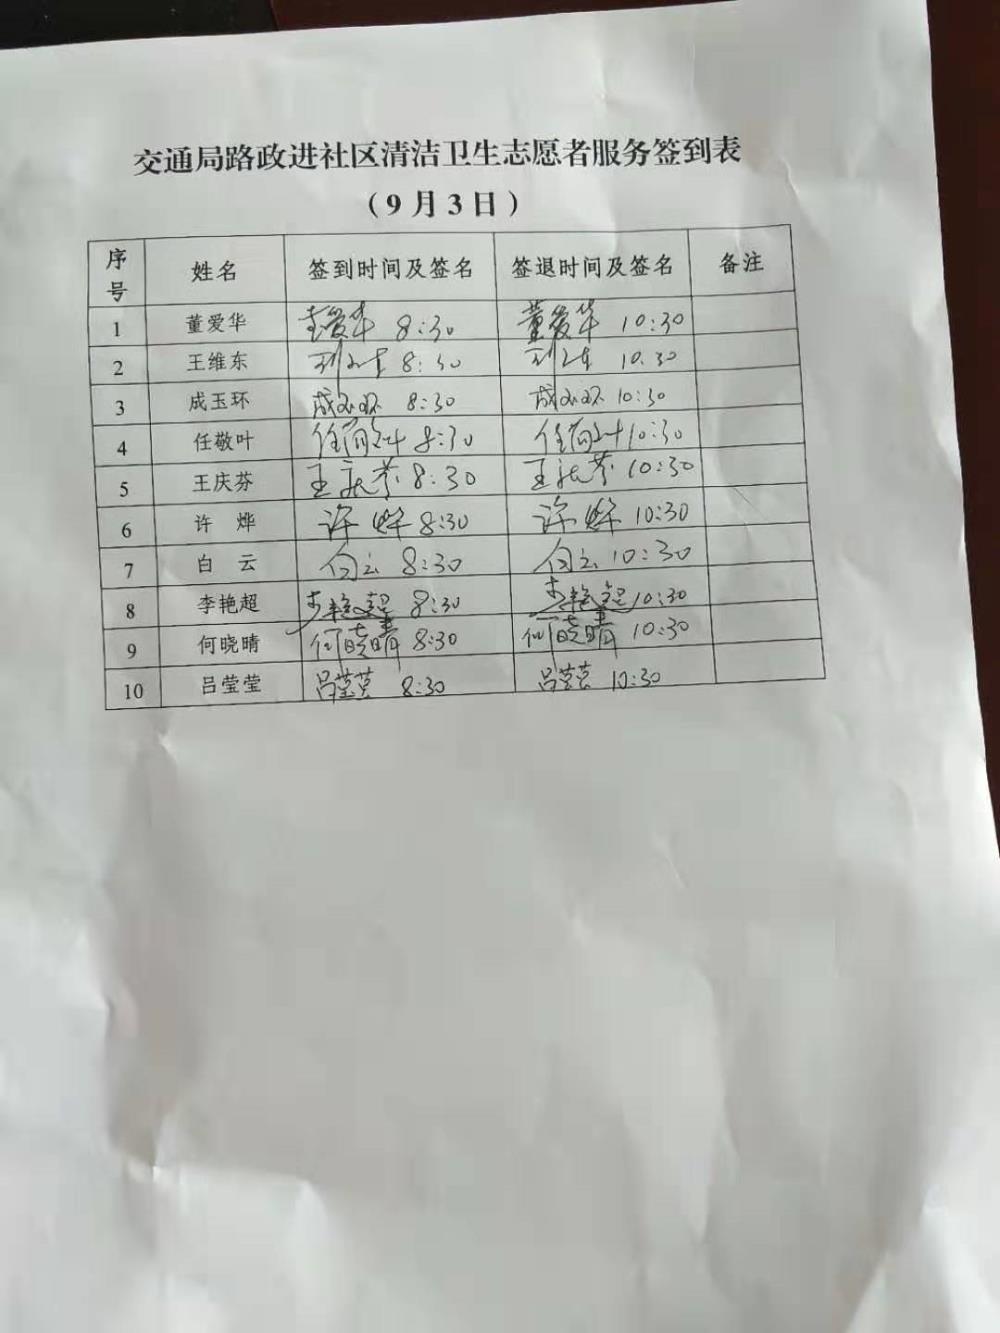 交通局路政进社区清洁卫生志愿者服务签到表
（9月3日）
序号 姓名 签到时间及签名 签退时间及签名 备注
1 董爱华 董爱华 8:30 董爱华 10:30
2 王维东 8:30 10:30
3 成玉环 成玉环 8:30 成玉环 10:30
4 任敬叶 任敬叶 8:30 任敬叶 10:30
5 王庆芬 王庆芬 8:30 王庆芬 10:30
6 许 烨 许烨 8:30 许烨 10:30
7 白 云 白云 8:30 白云 10:30
8 李艳超 李艳超 8:30 李艳超 10:30
9 何晓晴 何晓晴 8:30 何晓晴 10:30
10 吕莹莹 吕莹莹 8:30 吕莹莹 10:30